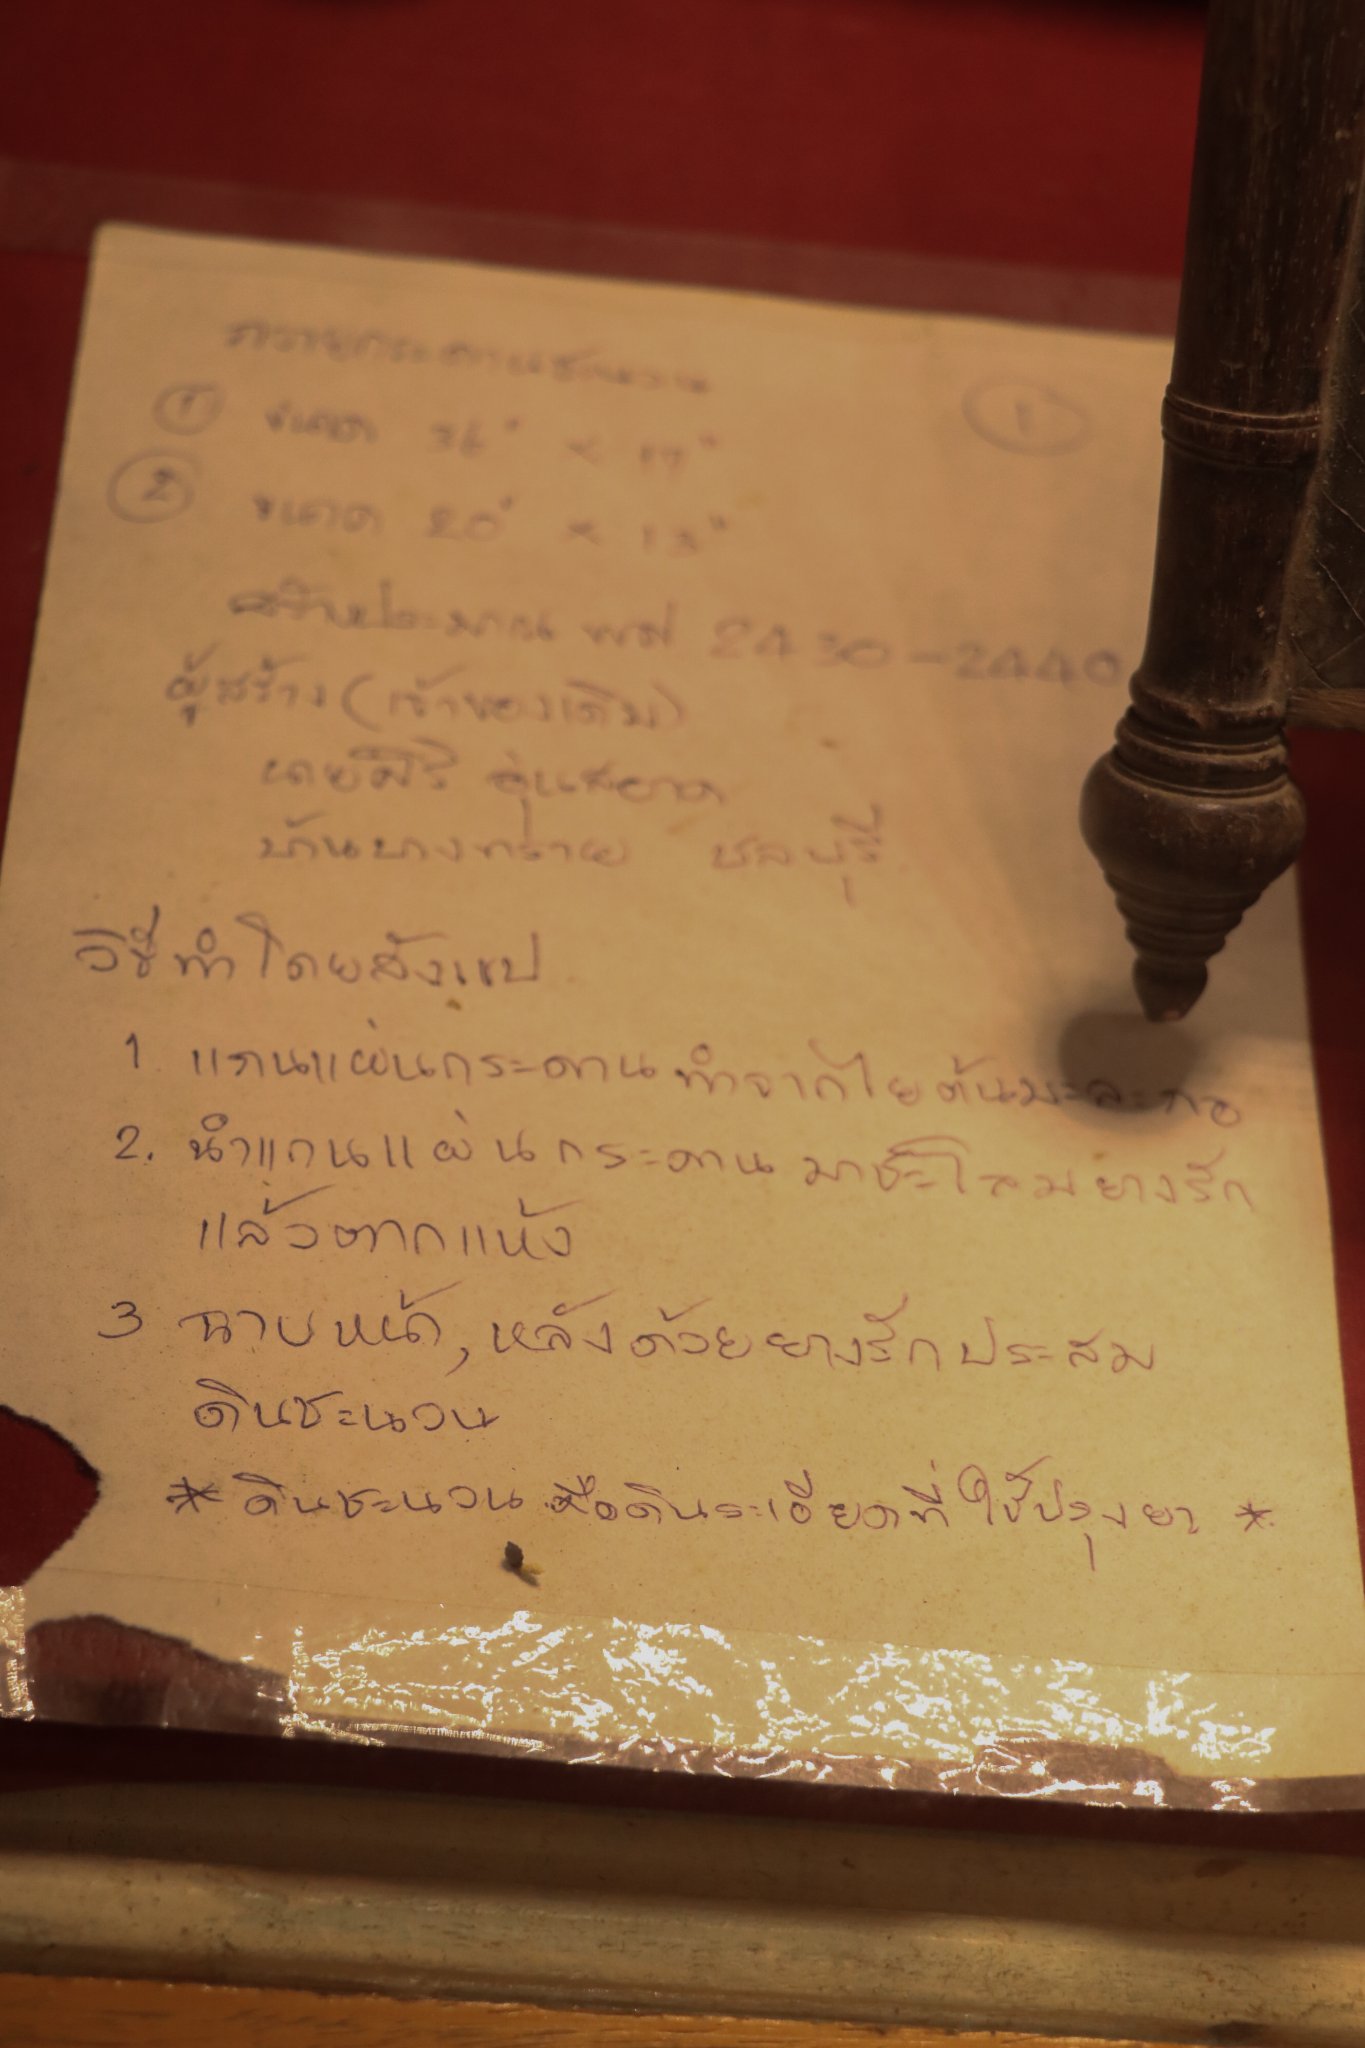 กระดานชนวน
① ①
ขนาด 36" × 17"
② ขนาด 20" × 13"
สร้างประมาณ พศ 2430-2440
ผู้สร้าง (เจ้าของเดิม)
นายศิริ
บ้านบางทราย ชลบุรี
วิธีทำโดยสังเขป
1 แกนแผ่นกระดาน ทำจากใยต้นมะละกอ
2. นำแกนแผ่นกระดาน มาชะโลมยางรัก
แล้วตากแห้ง
3 ฉาบหน้า, หลังด้วยยางรักประสม
ดินชะนวน
* ดินชะนวน คือดินระเอียดที่ใช้ปรุงยา *